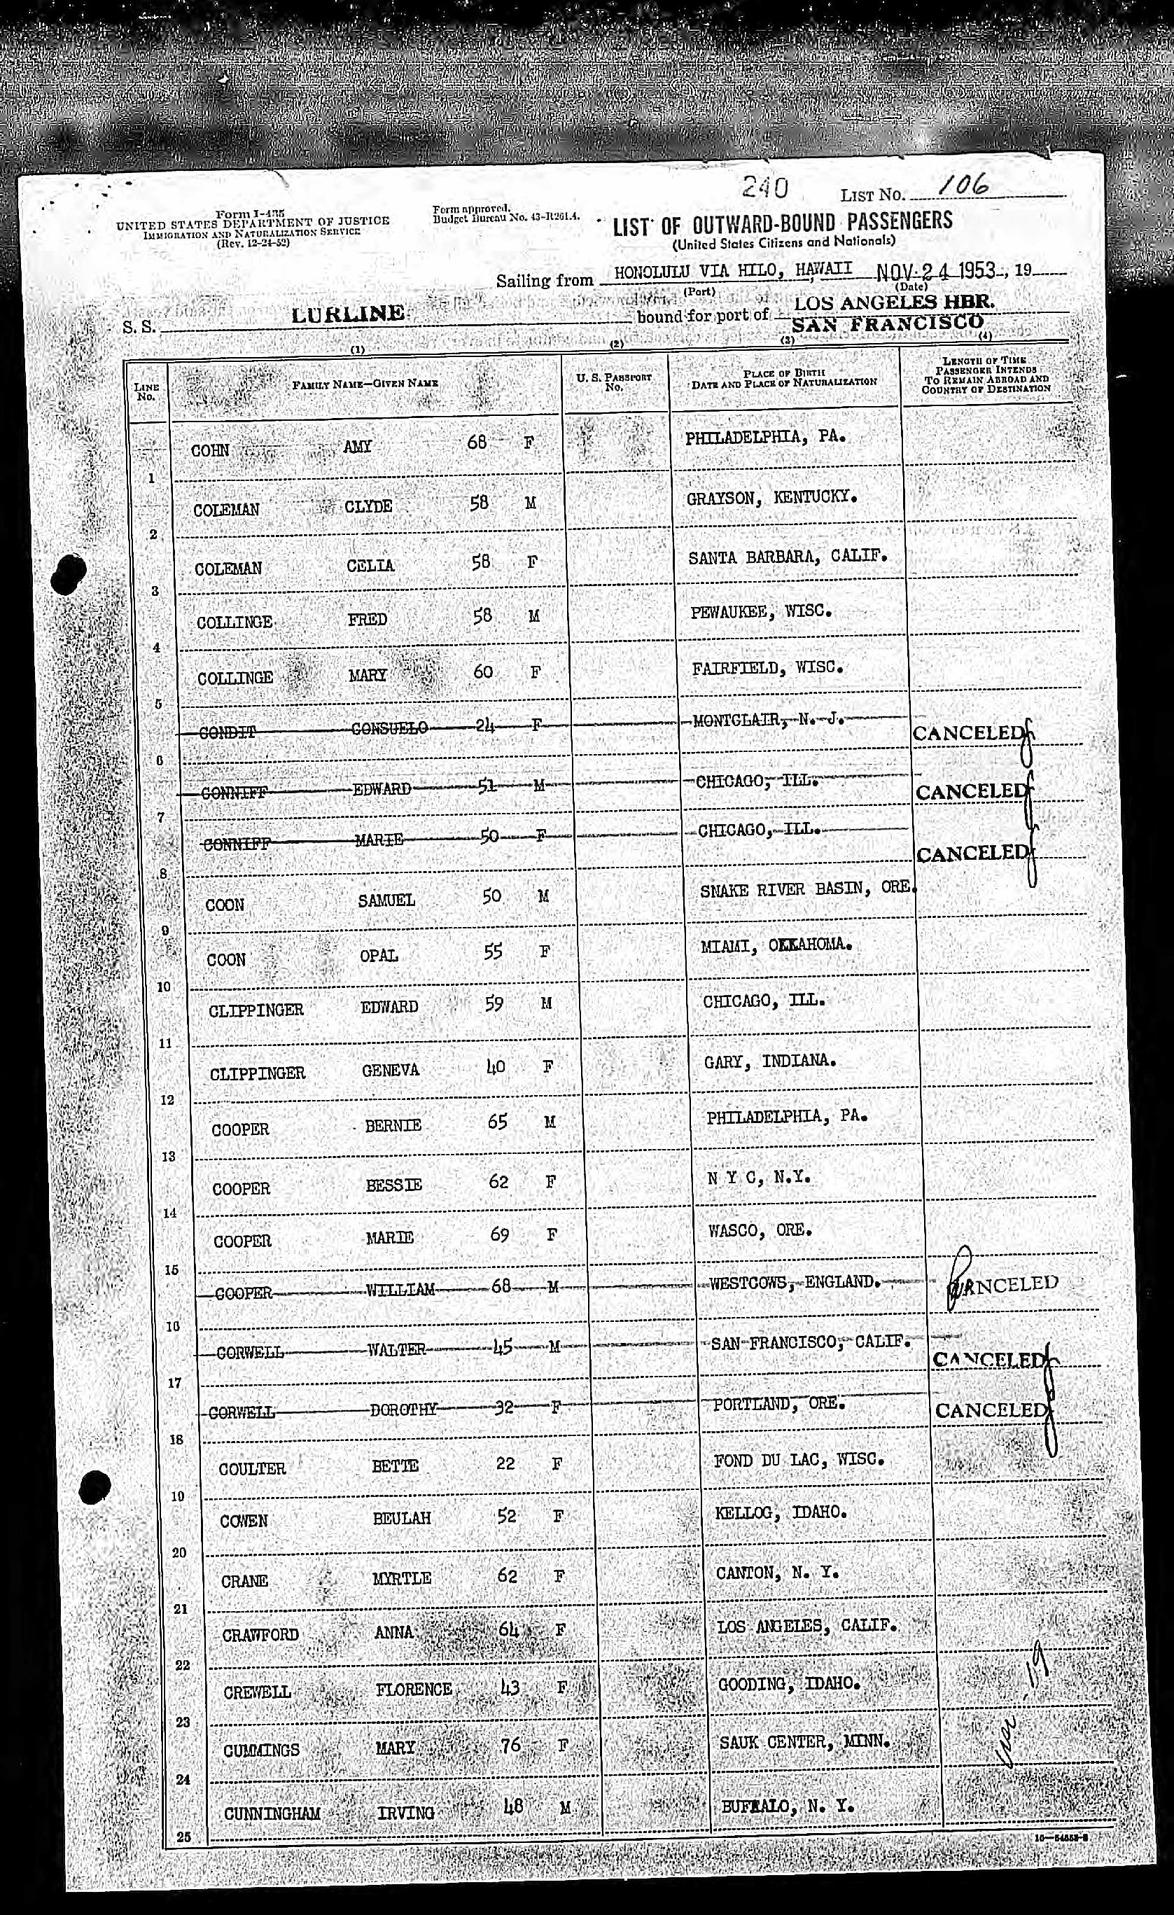 240 LIST No. 106
Form I-435
UNITED STATES DEPARTMENT OF JUSTICE
IMMIGRATION AND NATURALIZATION SERVICE
(Rev. 12-24-52)
Form approved.
Budget Bureau No. 43-R261.4.
LIST OF OUTWARD-BOUND PASSENGERS
(United States Citizens and Nationals)
Sailing from HONOLULU VIA HILO, HAWAII NOV 24 1953, 19
(Port) (Date)
S. S. LURLINE bound for port of LOS ANGELES HBR.
SAN FRANCISCO
(1) (2) (3) (4)
LINE No. FAMILY NAME—GIVEN NAME U. S. PASSPORT No. PLACE OF BIRTH DATE AND PLACE OF NATURALIZATION LENGTH OF TIME PASSENGER INTENDS TO REMAIN ABROAD AND COUNTRY OF DESTINATION
1 COHN AMY 68 F PHILADELPHIA, PA.
2 COLEMAN CLYDE 58 M GRAYSON, KENTUCKY.
3 COLEMAN CELIA 58 F SANTA BARBARA, CALIF.
4 COLLINGE FRED 58 M PEWAUKEE, WISC.
5 COLLINGE MARY 60 F FAIRFIELD, WISC.
6 CONDIT CONSUELO 24 F MONTCLAIR, N. J. CANCELED
7 CONNIFF EDWARD 51 M CHICAGO, ILL. CANCELED
8 CONNIFF MARIE 50 F CHICAGO, ILL. CANCELED
9 COON SAMUEL 50 M SNAKE RIVER BASIN, ORE.
10 COON OPAL 55 F MIAMI, OKLAHOMA.
11 CLIPPINGER EDWARD 59 M CHICAGO, ILL.
12 CLIPPINGER GENEVA 40 F GARY, INDIANA.
13 COOPER BERNIE 65 M PHILADELPHIA, PA.
14 COOPER BESSIE 62 F N Y C, N.Y.
15 COOPER MARIE 69 F WASCO, ORE.
16 COOPER WILLIAM 68 M WESTCOWS, ENGLAND. CANCELED
17 CORWELL WALTER 45 M SAN FRANCISCO, CALIF. CANCELED
18 CORWELL DOROTHY 32 F PORTLAND, ORE. CANCELED
19 COULTER BETTE 22 F FOND DU LAC, WISC.
20 COWEN BEULAH 52 F KELLOG, IDAHO.
21 CRANE MYRTLE 62 F CANTON, N. Y.
22 CRAWFORD ANNA 64 F LOS ANGELES, CALIF.
23 CREWELL FLORENCE 43 F GOODING, IDAHO.
24 CUMMINGS MARY 76 F SAUK CENTER, MINN.
25 CUNNINGHAM IRVING 48 M BUFFALO, N. Y.
19